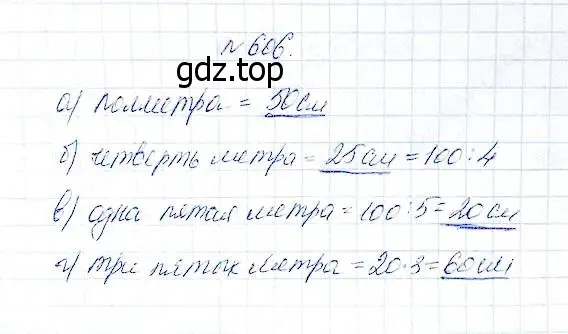 №606.
gdz.top
а) полметра = 50см
б) четверть метра = 25см = 100:4
в) одна пятая метра = 100:5=20см
г) три пятых метра = 20·3=60см